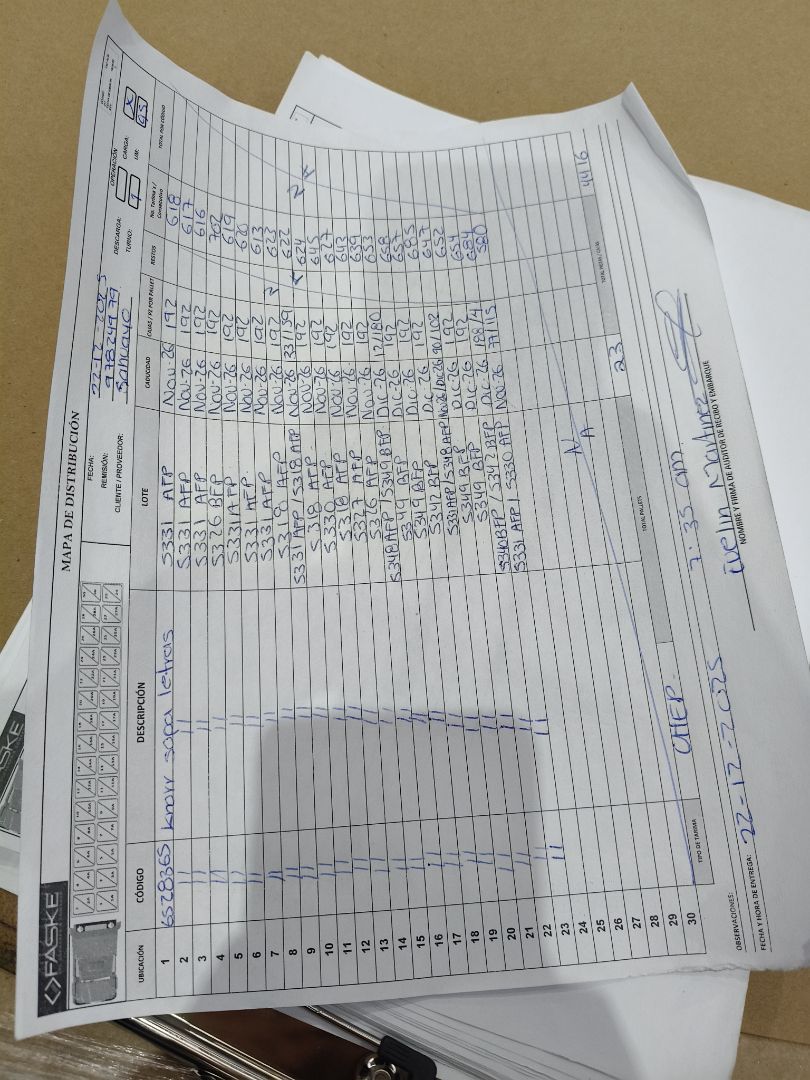 <>FASKE
MAPA DE DISTRIBUCIÓN
FECHA: 22-12-2025
REMISIÓN: 978249779
CLIENTE / PROVEEDOR: Sahuayo
OPERACIÓN
DESCARGA: CARGA: X
TURNO: 1 LIM: 95
UBICACIÓN CÓDIGO DESCRIPCIÓN LOTE CADUCIDAD CAJAS / PZ POR PALLET RESTOS No. Tarima y / Consecutivo TOTAL POR CÓDIGO
1 6528365 Knorr sopa letras S331 AFP Nov-26 192 618
2 11 11 S331 AFP Nov-26 192 617
3 11 11 S331 AFP Nov-26 192 616
4 11 11 S326 BFP Nov-26 192 702
5 11 11 S331 AFP Nov-26 192 619
6 11 11 S331 AFP Nov-26 192 620
7 11 11 S331 AFP Nov-26 192 613
8 11 11 S318 AFP Nov-26 192 623
9 11 11 S331 AFP / S318 AFP Nov-26 33/159 622
10 11 11 S318 AFP Nov-26 192 624
11 11 11 S330 AFP Nov-26 192 645
12 11 11 S318 AFP Nov-26 192 627
13 11 11 S327 AFP Nov-26 192 643
14 11 11 S326 AFP Nov-26 192 639
15 11 11 S348 AFP / S349 BFP Dic-26 12/180 653
16 11 11 S349 BFP Dic-26 192 658
17 11 11 S349 BFP Dic-26 192 657
18 11 11 S342 BFP Dic-26 192 685
19 11 11 S331 AFP / S348 AFP Nov-26/Dic-26 90/102 647
20 11 11 S349 BFP Dic-26 192 652
21 11 11 S349 BFP Dic-26 192 654
22 11 11 S340 BFP / S342 BFP Dic-26 188/4 684
23 11 S331 AFP / S330 AFP Nov-26 77/115 580
24
25
26
27
28
29
30
NA
TIPO DE TARIMA CHEP. TOTAL PALLETS 23 4416
OBSERVACIONES:
FECHA Y HORA DE ENTREGA: 22-12-2025 7:35 am. Evelin Martinez
NOMBRE Y FIRMA DE AUDITOR DE RECIBO Y EMBARQUE